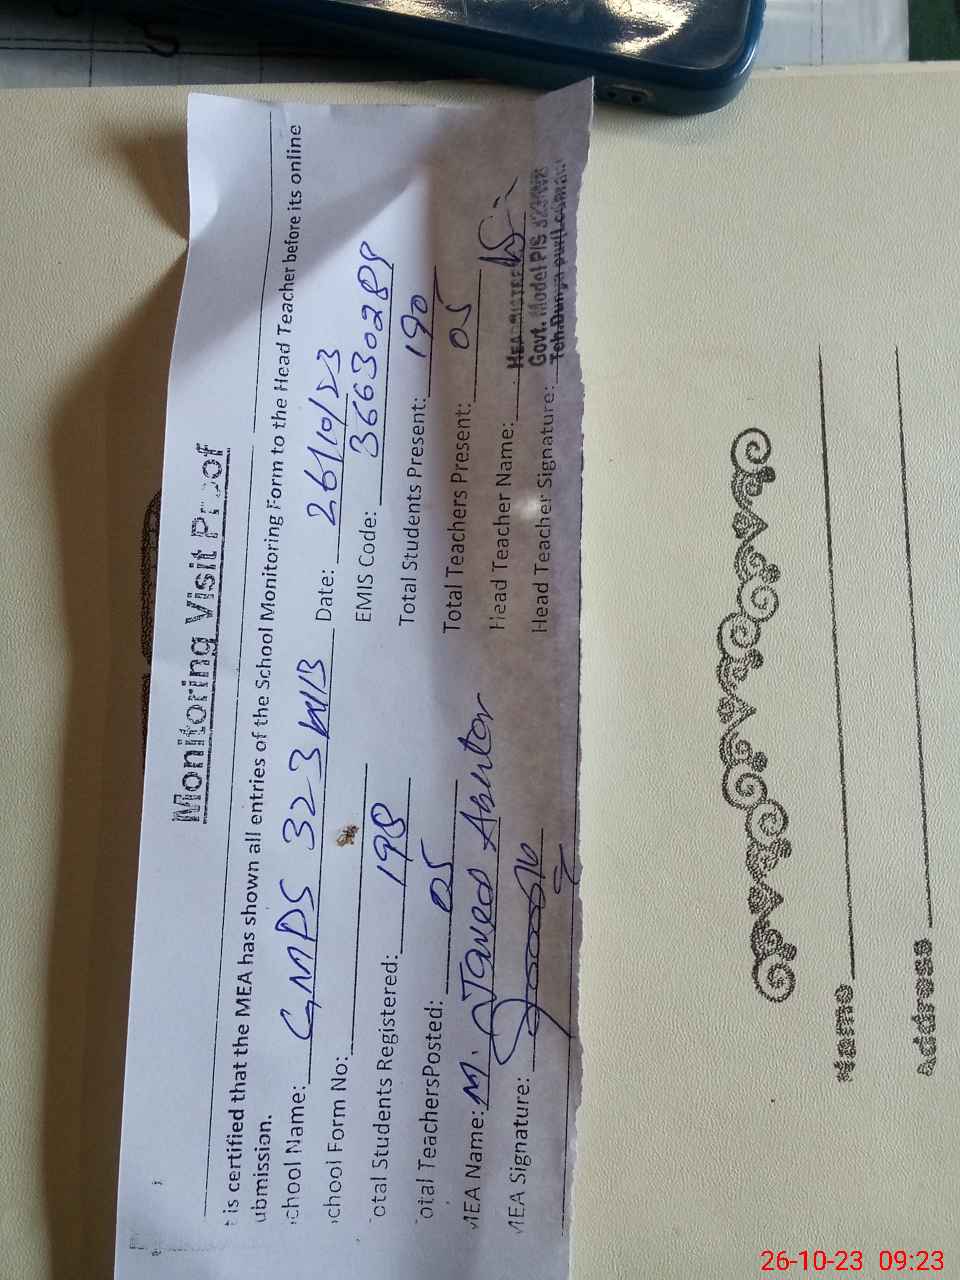 Monitoring Visit Proof
t is certified that the MEA has shown all entries of the School Monitoring Form to the Head Teacher before its online
ubmission.
chool Name: GMPS 323 W/B Date: 26/10/23
chool Form No: EMIS Code: 36630289
otal Students Registered: 198 Total Students Present: 190
otal TeachersPosted: 05 Total Teachers Present: 05
MEA Name: M. Javed Akhtar Head Teacher Name:
MEA Signature: Head Teacher Signature:
HEADMISTRESS
Govt. Model P/S 323/WB
Teh. Dunya pur (Lodhran)
Name
Address
26-10-23 09:23